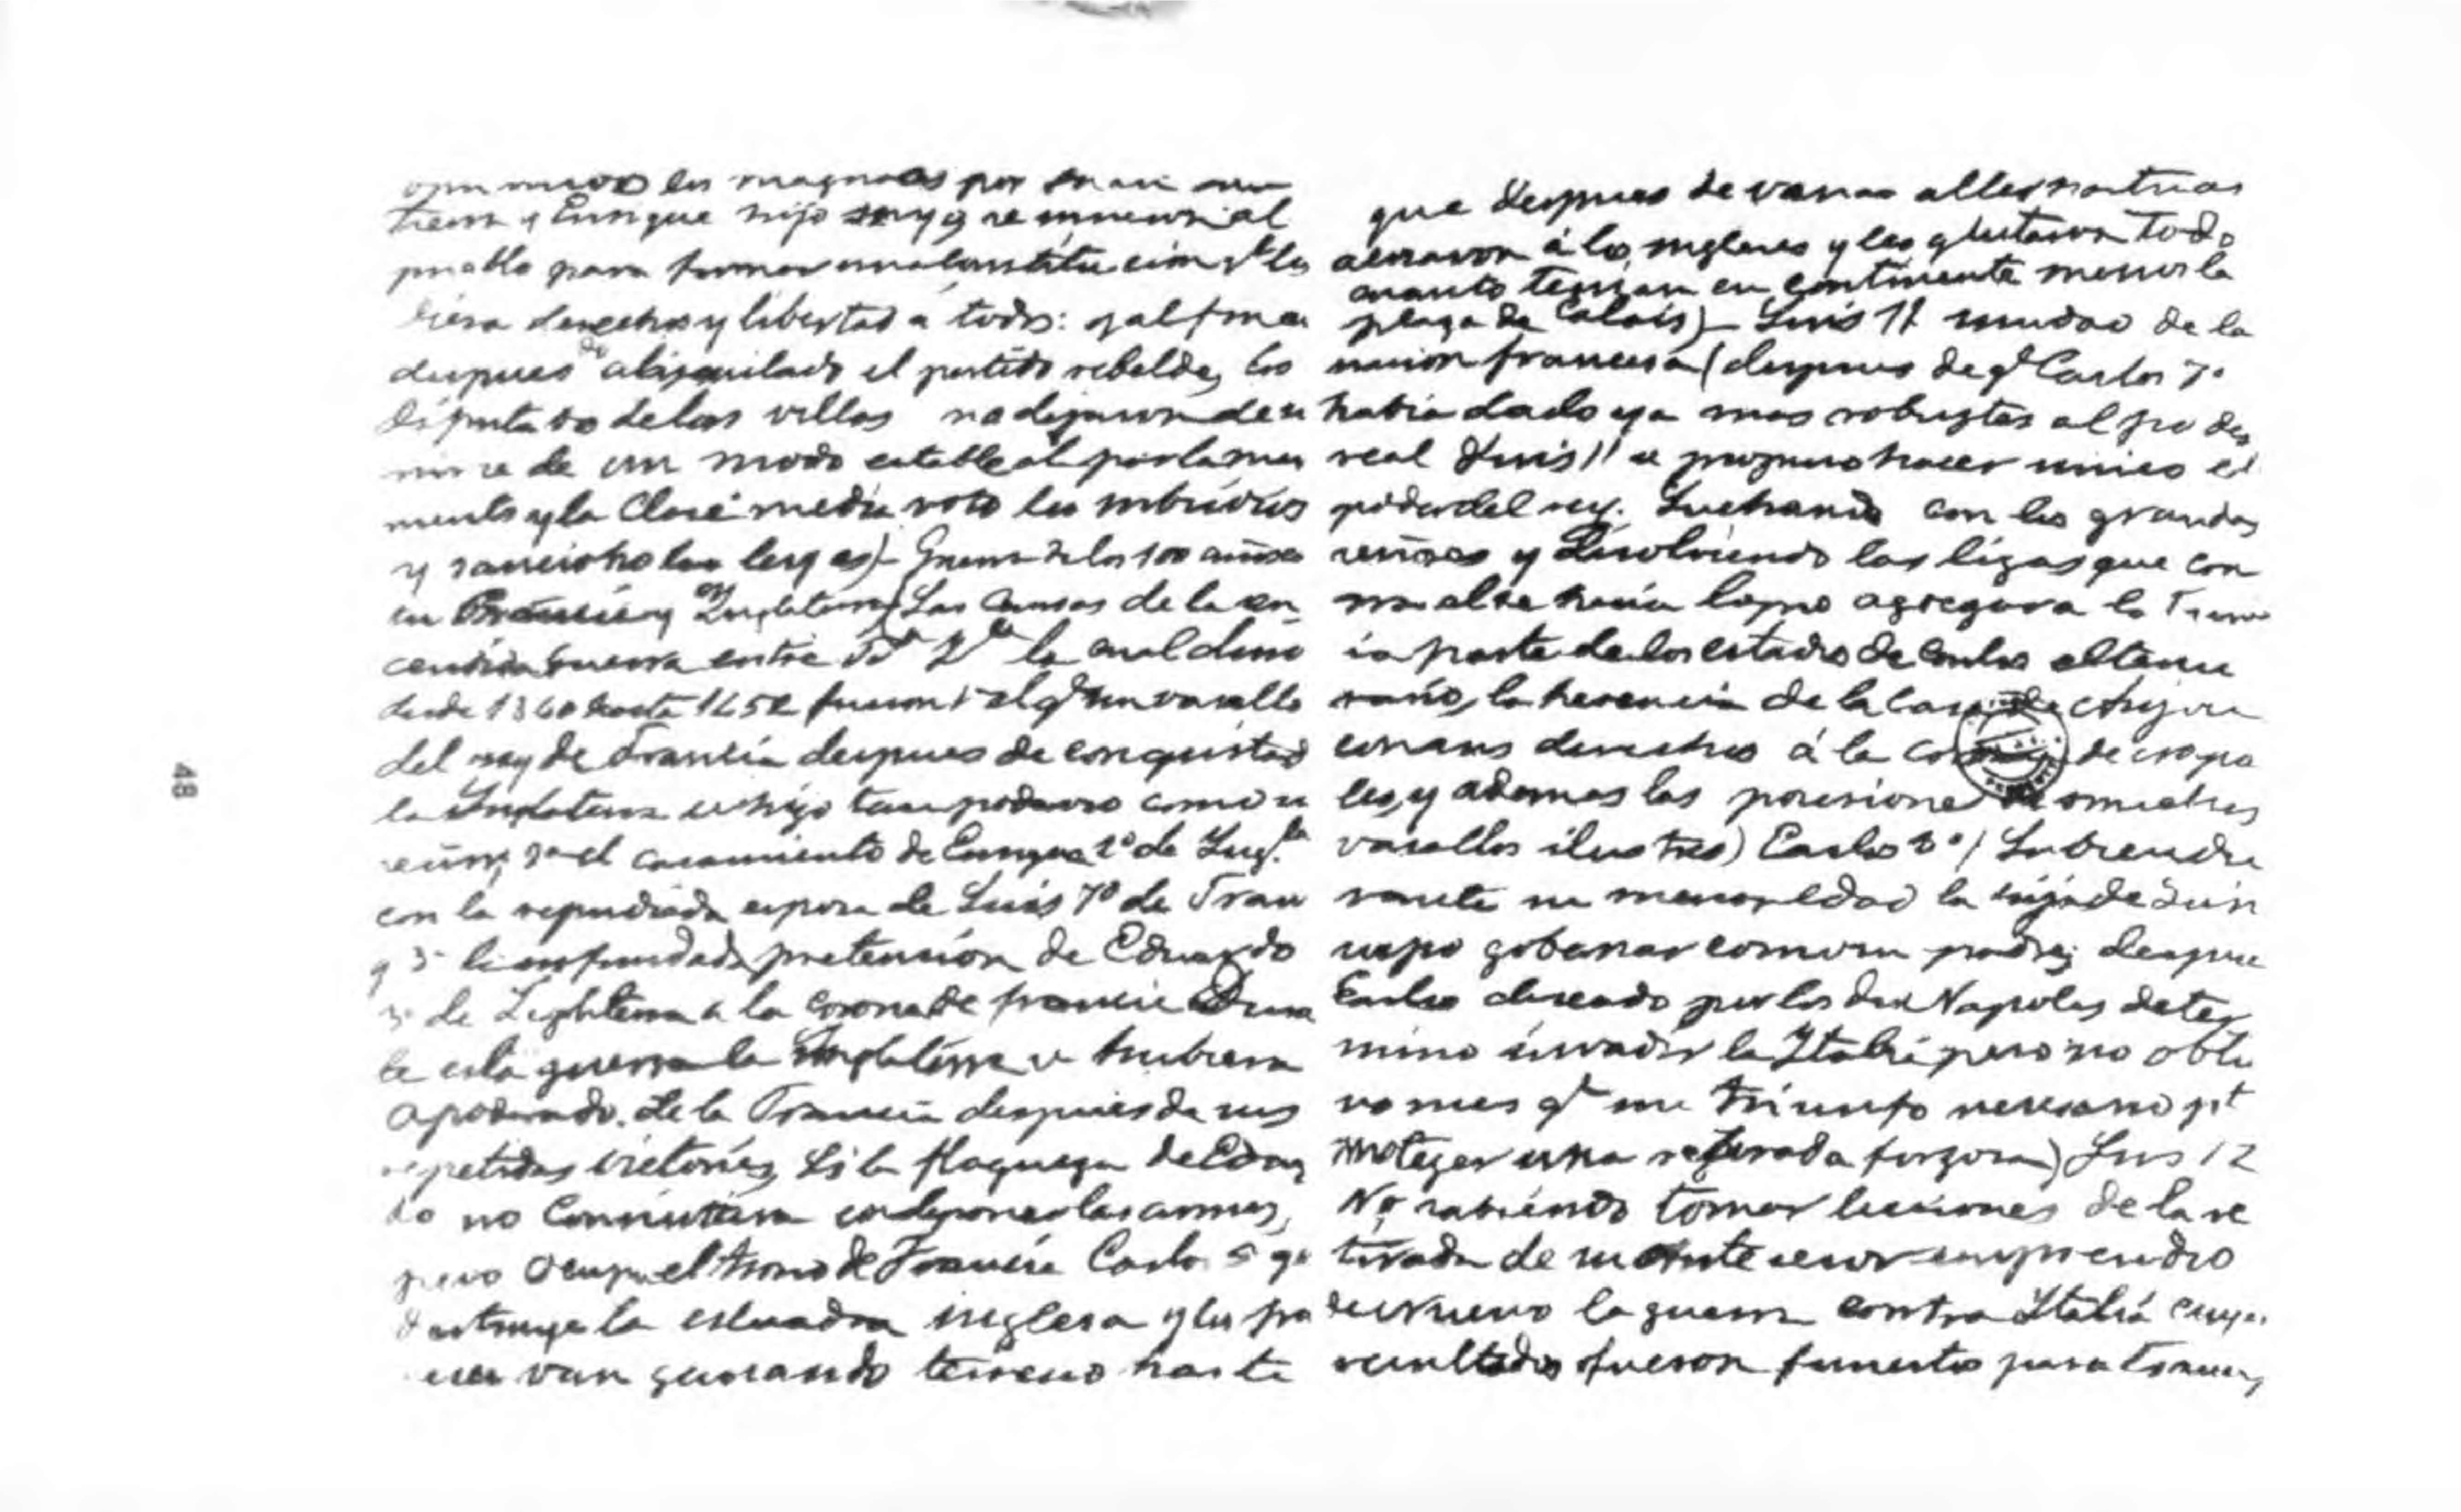 los magnates por
Enrique hijo suyo se reunieron al
pueblo para formar una constitucion q.e les
diera derechos y libertad á todos: y al fin
despues de aliquilado el partido rebelde, los
diputados de las villas no dejaron de
de un modo estable al parlamen
mento y la Clase media voto los subsidios
y sanciono las leyes)- Guerra de los 100 años
en Francia y Inglaterra (Las Causas de la en
cendida Guerra entre la cual duró
desde 1340 hasta 1452 fueron 1º el q.e un vasallo
del rey de Francia despues de conquistad
la Inglaterra se hizo tan poderoso como
señor; 2º el casamiento de Enrique 2º de Ing.la
con la repudiada esposa de Luis 7º de Fran
y 3º la infundada pretension de Eduardo
3º de Inglaterra a la corona de francia Duran
te esta guerra la Inglaterra se hubiera
apoderado de la Francia despues de sus
repetidas victorias, si la flaqueza de Eduar
do no Consintiera en deponer las armas,
pero ocupa el trono de Francia Carlos 5 q.e
destruye la escuadra inglesa y los fra
ceses van ganando terreno hasta
que despues de varias alternativas
á los ingleses y les quitaron todo
cuanto tenian en continente menos la
plaza de Calais)- Luis 11 de la
union francesa (despues de q.e Carlos 7º
habia dado ya mas robustes al poder
real Luis 11 se propuso hacer unico el
poder del rey. Luchando con los grandes
señores y disolviendo las ligas que con
tra el se hacia logro agregar a la Franc
ia parte de los estados de Carlos el teme
rario, la herencia de la casa de Anjou
con sus derechos á la corona de Napo
les, y ademas las posesiones de muchos
vasallos ilustres) Carlos 8º (
rante su menor edad la hija de Luis
supo gobernar como su padre; despues
Carlos deseado por los de Napoles deter
mino invadir la Italia pero no obtu
vo mas q.e un triunfo necesario p.a
proteger una retirada forzosa) Luis 12
No sabiendo tomar lecciones de la re
tirada de su antecesor emprendio
de nuevo la guerra contra Italia cuyos
resultados fueron funestos para Franc
48